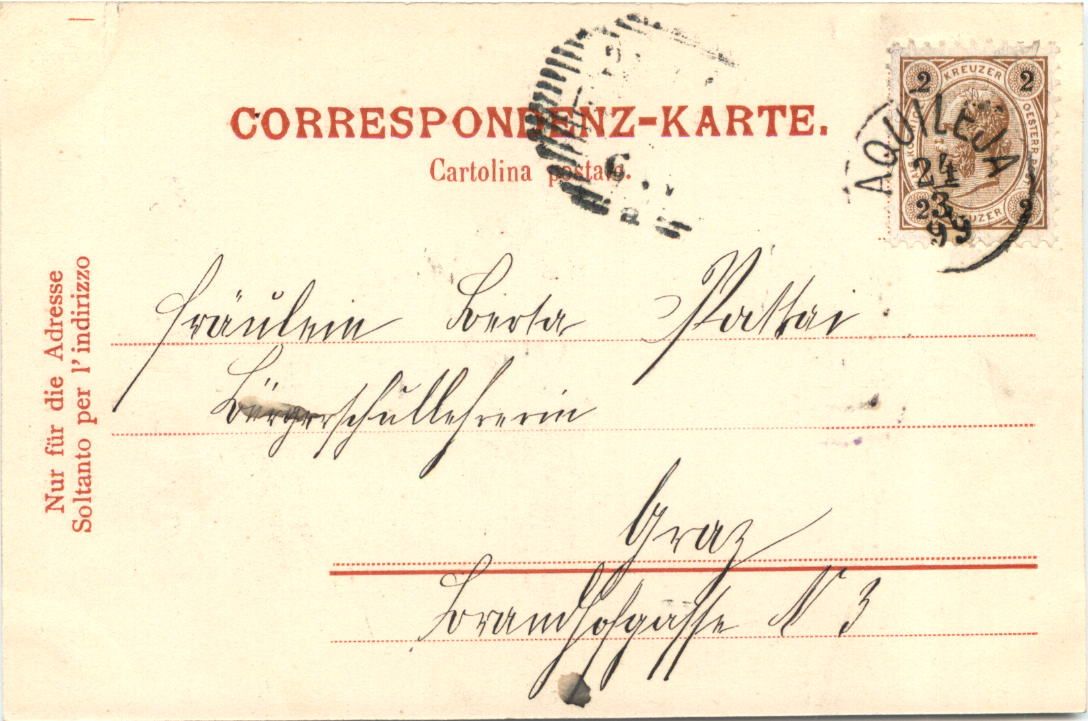 CORRESPONDENZ-KARTE.
Cartolina postale.
2 KREUZER 2
OESTERR.
2 KREUZER 2
AQUILEJA
24
3
99
Nur für die Adresse
Soltanto per l'indirizzo
Fräulein Berta Pattai
Bürgerschullehrerin
Graz
Brandhofgasse N 3